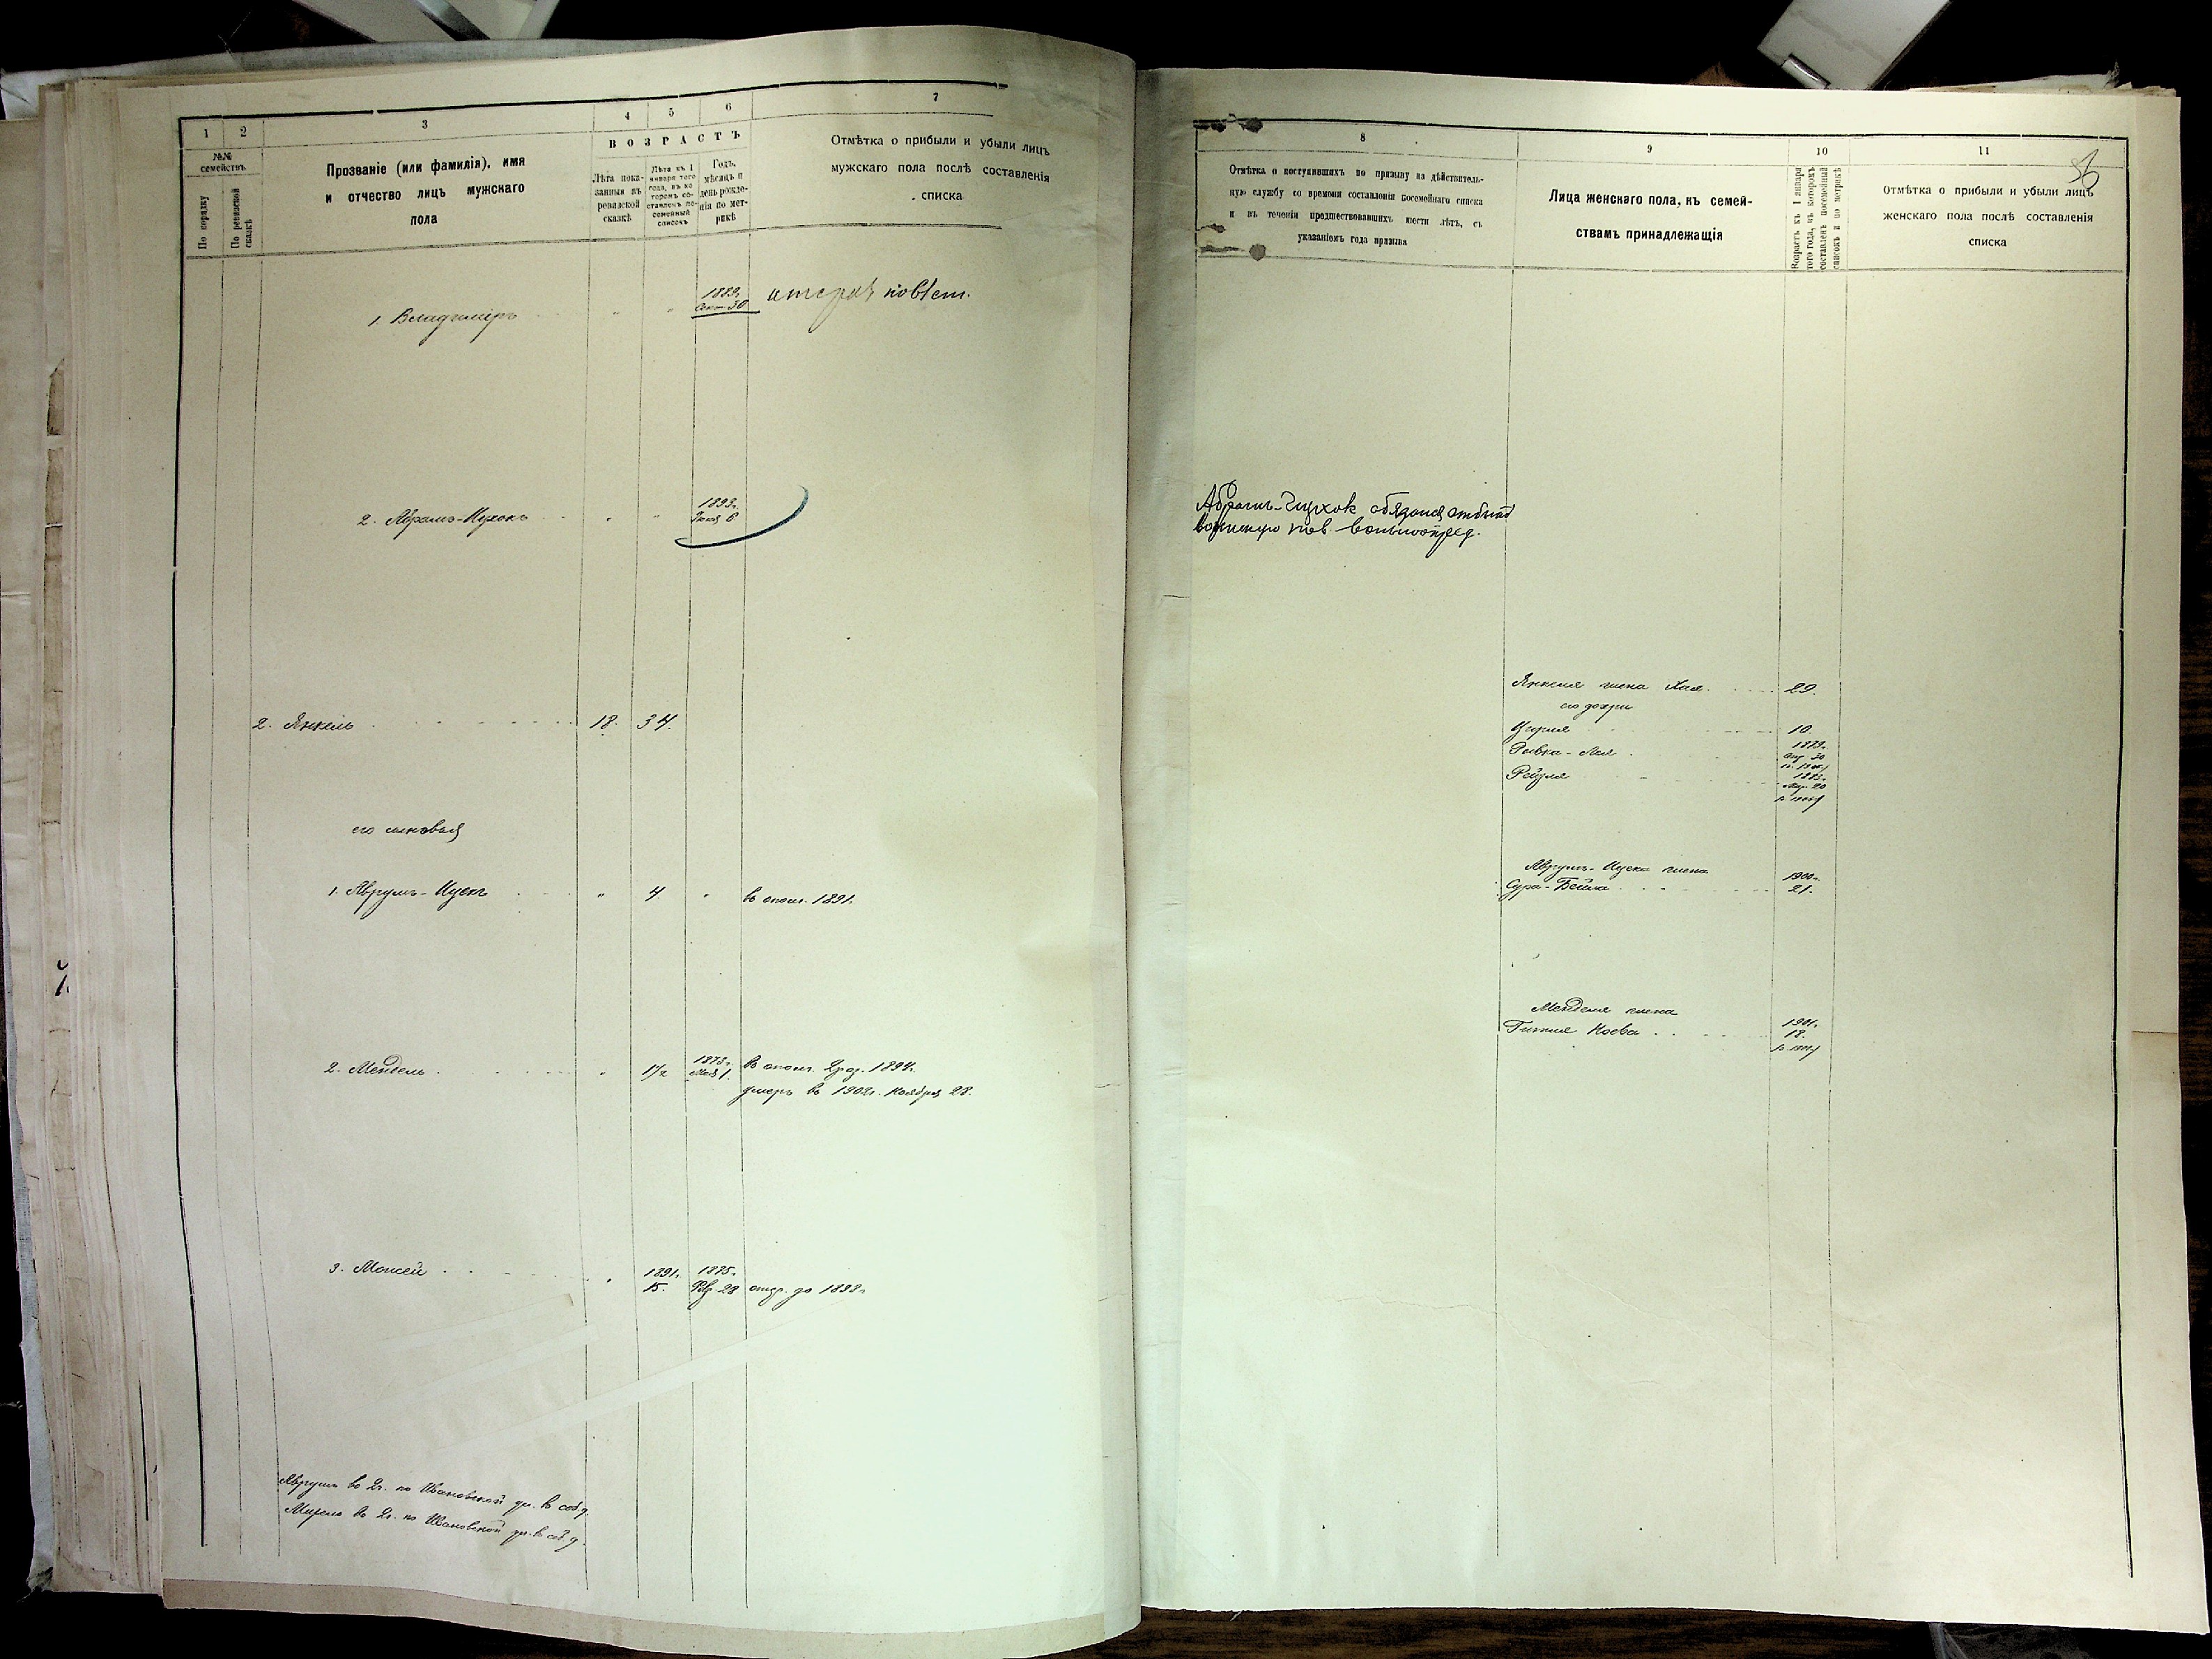 1
2
3
4
5
6
7
№№ семействъ
По порядку
По ревизской сказкѣ
Прозваніе (или фамилія), имя
и отчество лицъ мужскаго
пола
ВОЗРАСТЪ
Лѣта пока-
занныя въ
ревизской
сказкѣ
Лѣта къ 1
января того
года, въ ко
торомъ со-
ставленъ по-
семейный
списокъ
Годъ,
мѣсяцъ и
день рожде-
нія по мет-
рикѣ
Отмѣтка о прибыли и убыли лицъ
мужскаго пола послѣ составленія
списка
1. Владиміръ " " 1889г.
Сент. 30
2. Абрамъ-Ицхокъ " " 1893г.
6
2. Янкель 18. 34.
его сыновья
1. Аврумъ-Ицекъ " 4. " въ опол. 1891.
2. Мендель " 17½ 1873г.
Мая 1. въ опол. 2 раз. 1894г.
умеръ въ 1902г. Ноября 28.
3. Моисей " 1891г. 1875г.
15. 28 отср. до 1898г.
Аврумъ въ 2г. по Ивановской ул. в соб. д.
въ 2г. по Ивановской ул. в соб. д.
8
9
10
11
Отмѣтка о поступившихъ по призыву на дѣйствитель-
ную службу со времени составленія посемейнаго списка
и въ теченіи предшествовавшихъ шести лѣтъ, съ
указаніемъ года призыва
Лица женскаго пола, къ семей-
ствамъ принадлежащія
Возрастъ къ 1 января
того года, въ которомъ
составленъ посемейный
списокъ и по метрикѣ
Отмѣтка о прибыли и убыли лицъ
женскаго пола послѣ составленія
списка
Абрамъ-Ицхок обязался отбыть
воинскую пов. вольноопред.
Янкеля жена Хая 29.
его дочери
10.
Ривка-Лея 1879г.
30
Рейзля
20
Аврумъ-Ицека жена 1900г.
Сура-Бейла 21.
Менделя жена 1901г.
Гитля 18.